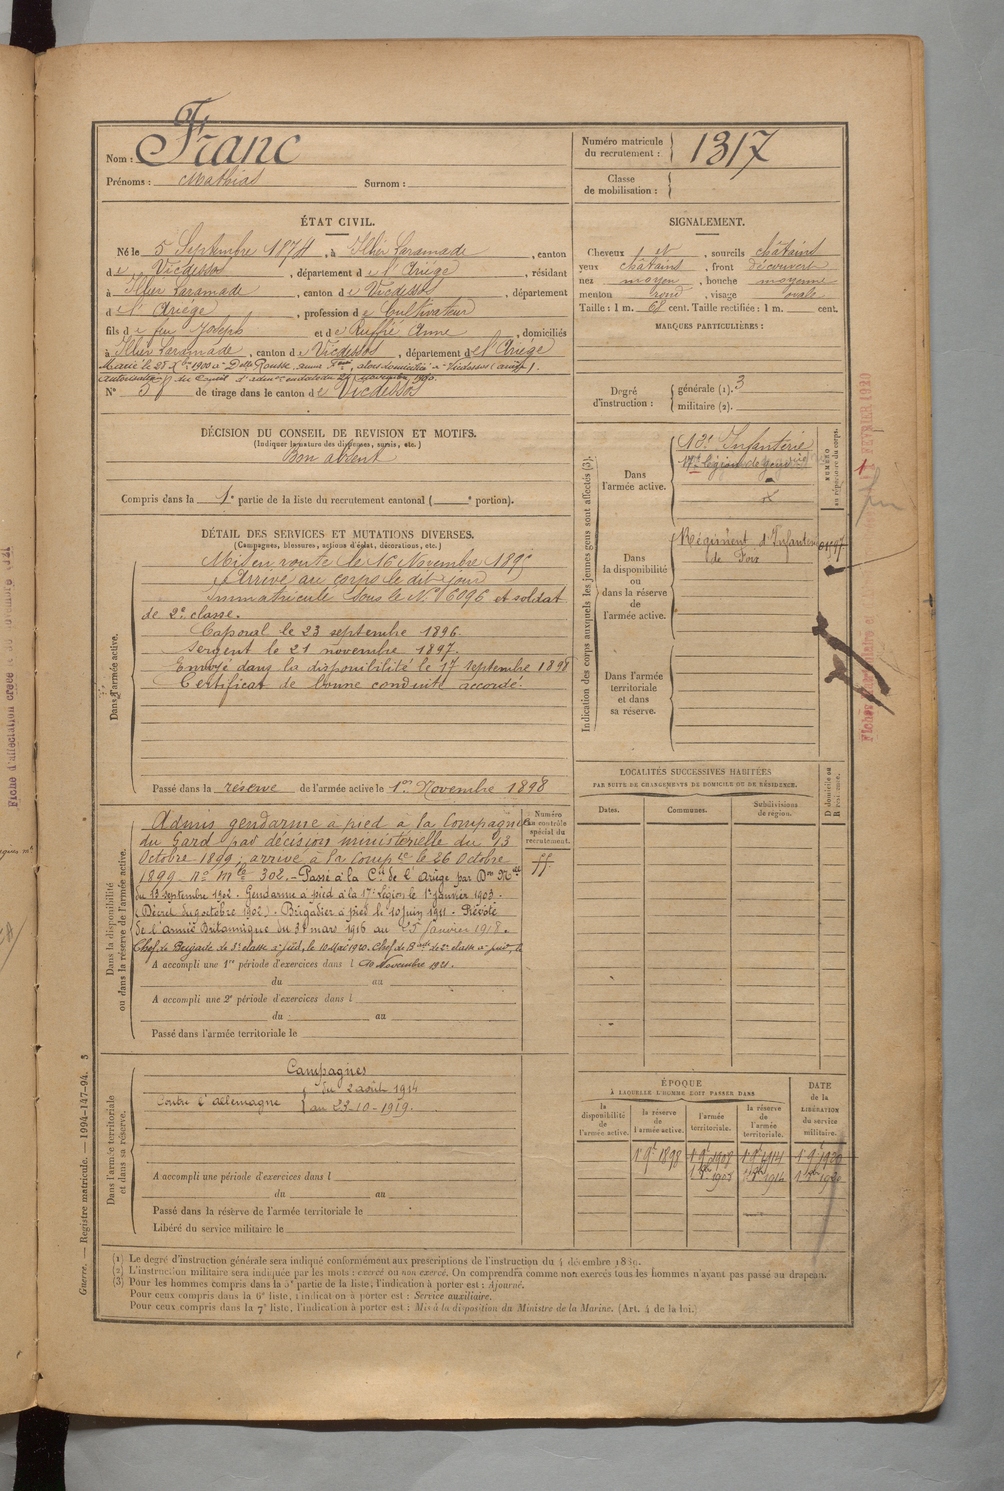 Nom : Franc
Prénoms : Mathias Surnom :
Numéro matricule du recrutement : 1317
Classe de mobilisation :
ÉTAT CIVIL.
Né le 5 Septembre 1874, à Illier Laramade, canton
de Vicdessos, département de l'Ariège, résidant
à Illier Laramade, canton de Vicdessos, département
de l'Ariège, profession de Cultivateur
fils de feu Joseph et de Ruffié Anne, domiciliés
à Illier Laramade, canton de Vicdessos, département de l'Ariège
Marié le 28 Xbre 1900 à Delle Rousse, Anne, alors domiciliée à Vicdessos (Ariège).
Autorisation du Conseil d'admon en date du novembre 1900.
N° 37 de tirage dans le canton de Vicdessos
SIGNALEMENT.
Cheveux et, sourcils châtains
yeux châtains, front découvert
nez moyen, bouche moyenne
menton rond, visage ovale
Taille : 1 m. 68 cent. Taille rectifiée : 1 m. cent.
MARQUES PARTICULIÈRES :
Degré d'instruction : générale (1). 3
militaire (2).
DÉCISION DU CONSEIL DE RÉVISION ET MOTIFS.
(Indiquer la nature des dispenses, sursis, etc.)
Bon absent
Compris dans la 1e partie de la liste du recrutement cantonal ( e portion).
DÉTAIL DES SERVICES ET MUTATIONS DIVERSES.
(Campagnes, blessures, actions d'éclat, décorations, etc.)
Dans l'armée active.
Mis en route le 16 Novembre 1895
Arrivé au corps le dit jour
Immatriculé sous le N° 6096 et soldat
de 2e classe.
Caporal le 23 septembre 1896.
Sergent le 21 novembre 1897.
Envoyé dans la disponibilité le 17 septembre 1898
Certificat de bonne conduite accordé.
Passé dans la réserve de l'armée active le 1er Novembre 1898
Indication des corps auxquels les jeunes gens sont affectés (3).
NUMÉRO au répertoire du corps.
Dans l'armée active.
13e Infanterie
17e Légion de Gendrie
Dans la disponibilité ou dans la réserve de l'armée active.
Régiment d'Infanterie
de Foix
Dans l'armée territoriale et dans sa réserve.
LOCALITÉS SUCCESSIVES HABITÉES
PAR SUITE DE CHANGEMENTS DE DOMICILE OU DE RÉSIDENCE.
Dates. Communes. Subdivisions de région. D domicile ou R résidence.
Dans la disponibilité ou dans la réserve de l'armée active.
Numéro au contrôle spécial du recrutement.
Admis gendarme à pied à la Compagnie
du Gard par décision ministérielle du 13
Octobre 1899 ; arrivé à la Compie le 26 Octobre
1899 no mle 302. - Passé à la Cie de l'Ariège par Don Mlle
du 13 septembre 1902. Gendarme à pied à la 17e Légion le 1er janvier 1903.
(Décret du 9 octobre 1902). Brigadier à pied le 10 juin 1911. Prévôté
de l'armée Britannique du 31 mars 1916 au 25 janvier 1918.
Chef de Brigade de 3e classe à pied, le 10 Mai 1920. Chef de Bde de 2e classe à pied, le
A accompli une 1re période d'exercices dans l 10 Novembre 1921.
du au
A accompli une 2e période d'exercices dans l
du au
Passé dans l'armée territoriale le
Dans l'armée territoriale et dans sa réserve.
Campagnes
Contre l'Allemagne du 2 août 1914
au 23-10-1919.
A accompli une période d'exercices dans l
du au
Passé dans la réserve de l'armée territoriale le
Libéré du service militaire le
ÉPOQUE
À LAQUELLE L'HOMME DOIT PASSER DANS
DATE de la LIBÉRATION du service militaire.
la disponibilité de l'armée active. la réserve de l'armée active. l'armée territoriale. la réserve de l'armée territoriale.
(1) Le degré d'instruction générale sera indiqué conformément aux prescriptions de l'instruction du 4 décembre 1889.
(2) L'instruction militaire sera indiquée par les mots : exercé ou non exercé. On comprendra comme non exercés tous les hommes n'ayant pas passé au drapeau.
(3) Pour les hommes compris dans la 5e partie de la liste, l'indication à porter est : Ajourné.
Pour ceux compris dans la 6e liste, l'indication à porter est : Service auxiliaire.
Pour ceux compris dans la 7e liste, l'indication à porter est : Mis à la disposition du Ministre de la Marine. (Art. 4 de la loi.)
Guerre. — Registre matricule. — 1994-147-94. 3